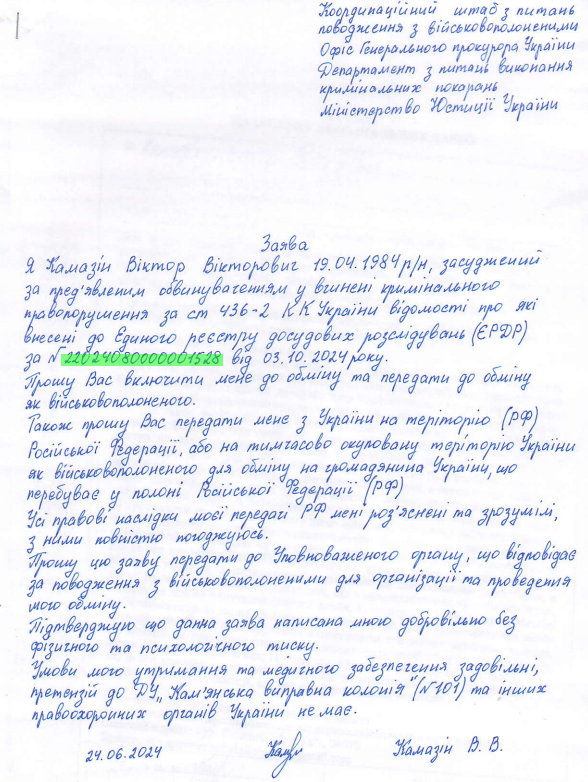 Координаційний штаб з питань
поводження з військовополоненими
Офіс Генерального прокурора України
Департамент з питань виконання
кримінальних покарань
Міністерство Юстиції України
Заява
Я Камазін Віктор Вікторович 19.04.1984 р/н, засуджений
за пред'явленим обвинуваченням у вчинені кримінального
правопорушення за ст 436-2 КК України відомості про які
внесені до Єдиного реєстру досудових розслідувань (ЄРДР)
за №22024080000001528 від 03.10.2024 року.
Прошу Вас включити мене до обміну та передати до обміну
як військовополоненого.
Також прошу Вас передати мене з України на теріторію (РФ)
Російської Федерації, або на тимчасово окуровану теріторію України
як військовополоненого для обміну на громадянина України, що
перебуває у полоні Російської Федерації (РФ)
Усі правові наслідки моєї передачі РФ мені роз'яснені та зрозумілі,
з ними повністю погоджуюсь.
Прошу цю заяву передати до Уповноваженого органу, що відповідає
за поводження з військовополоненими для організації та проведення
мого обміну.
Підтверджую що данна заява написана мною добровільно без
фізичного та психологічного тиску.
Умови мого утримання та медичного забезпечення задовільні,
претензій до ДУ „Кам'янська виправна колонія" (№101) та інших
правоохоронних органів України не має.
24.06.2024 Камазін В. В.